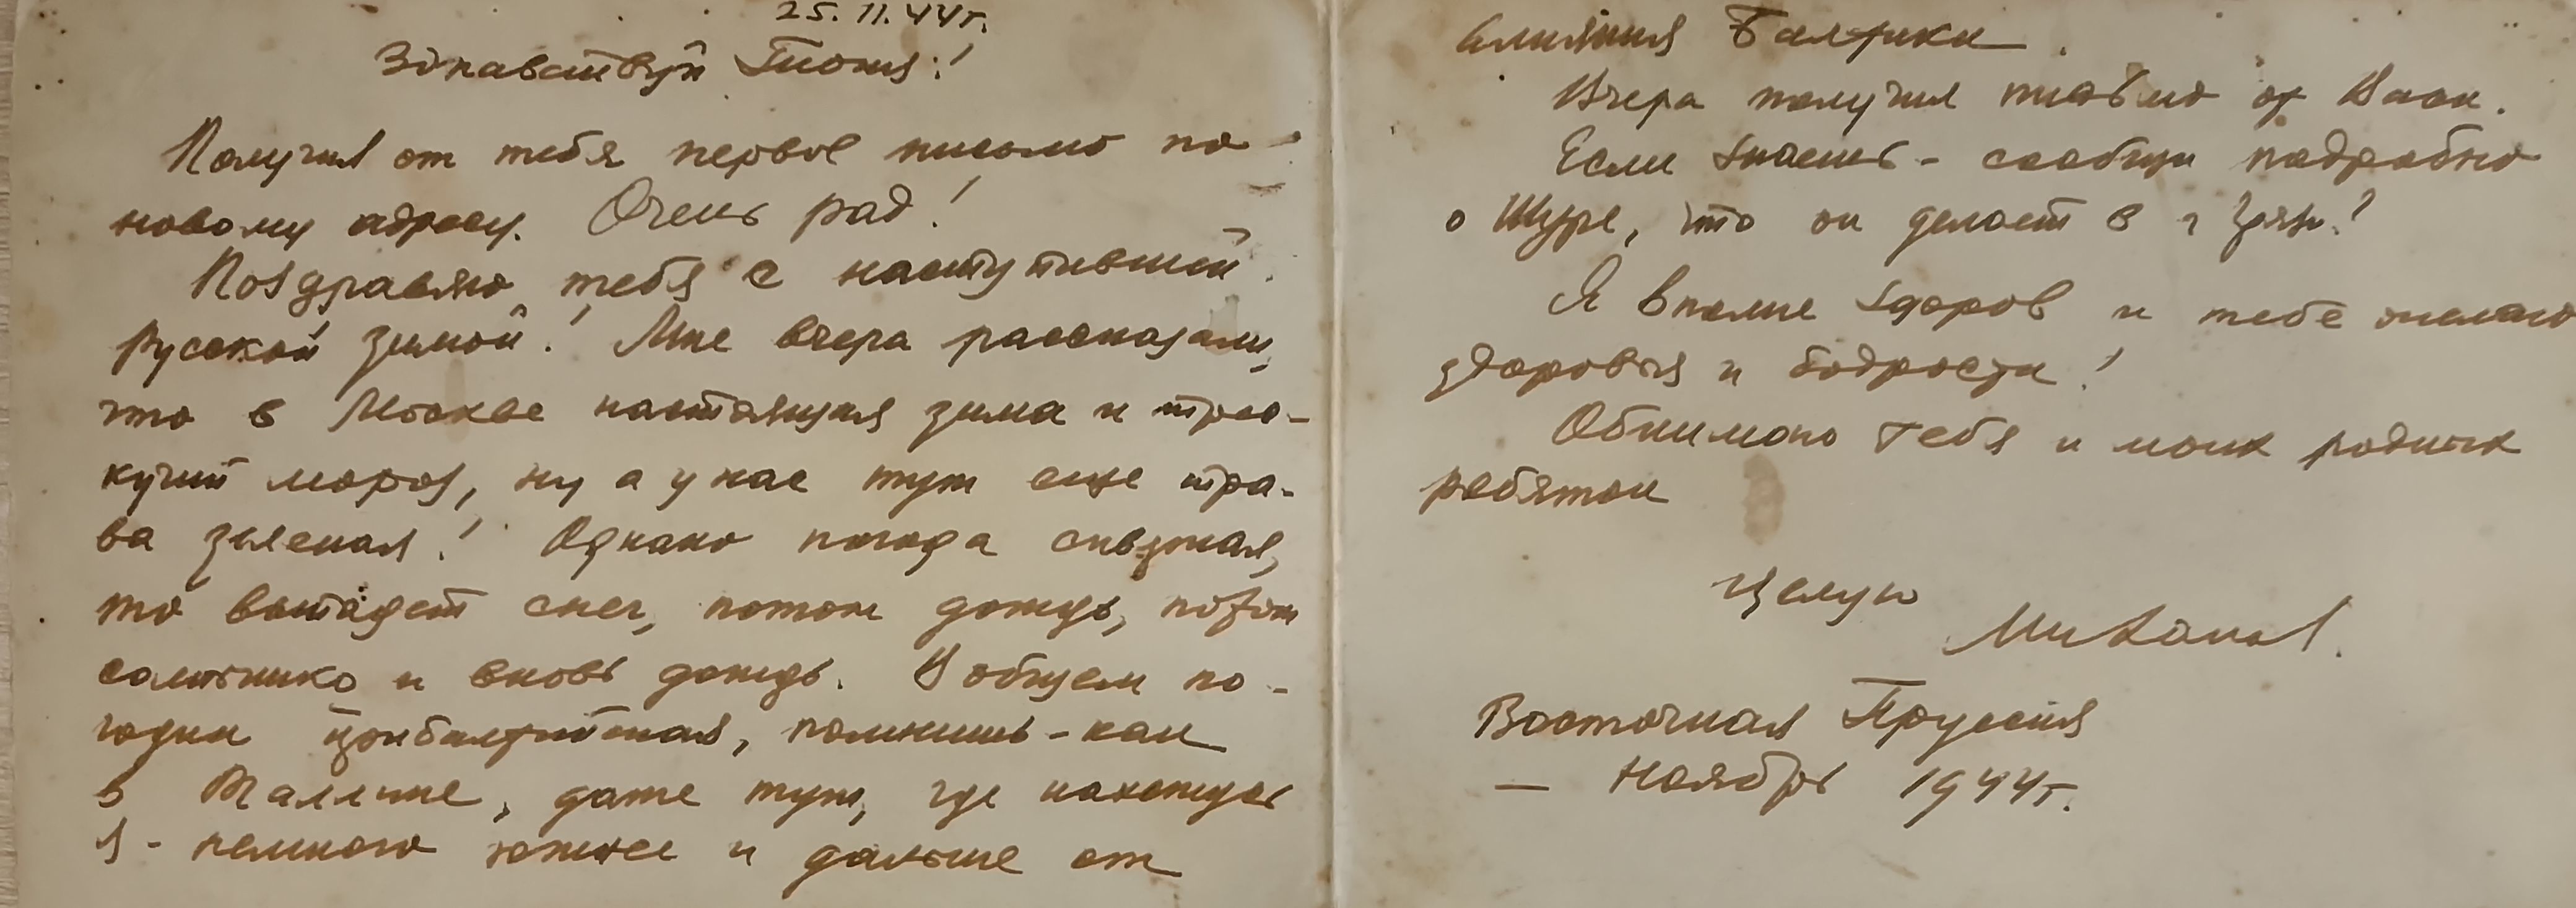 25.11.44г.
Здравствуй Тоня!
Получил от тебя первое письмо по
новому адресу. Очень рад!
Поздравляю тебя с наступившей
русской зимой! Мне вчера рассказали,
что в Москве настоящая зима и трес-
кучий мороз, ну а у нас тут еще тра-
ва зеленая! Однако погода скверная,
то выпадет снег, потом дождь, потом
солнышко и вновь дождь. В общем по-
года прибалтийская, помнишь - как
в Таллине, даже тут, где нахожусь
я - немного южнее и дальше от
влияния Балтики.
Вчера получил письмо от
Если знаешь - сообщи подробно
о Шуре, что он делает в г
Я вполне здоров и тебе желаю
здоровья и бодрости!
Обнимаю тебя и моих родных
ребяток
Целую
Михаил.
Восточная Пруссия
— Ноябрь 1944г.